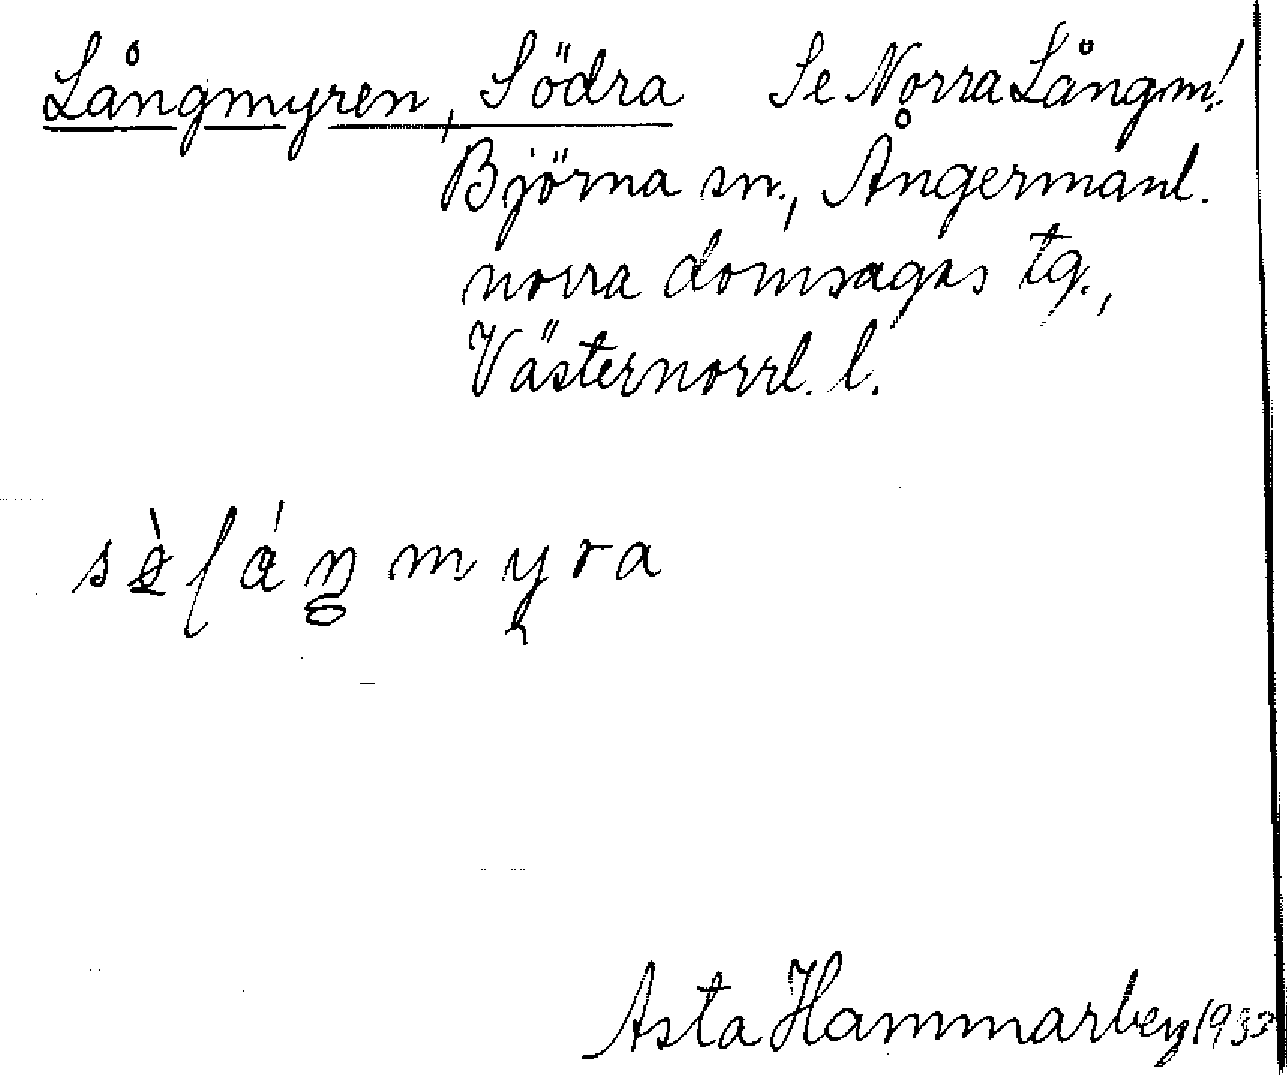 Långmyren, Södra Se Norra Långm!
Björna sn., Ångermanl.
norra domsagas tg.,
Västernorrl. l.
Asta Hammarberg